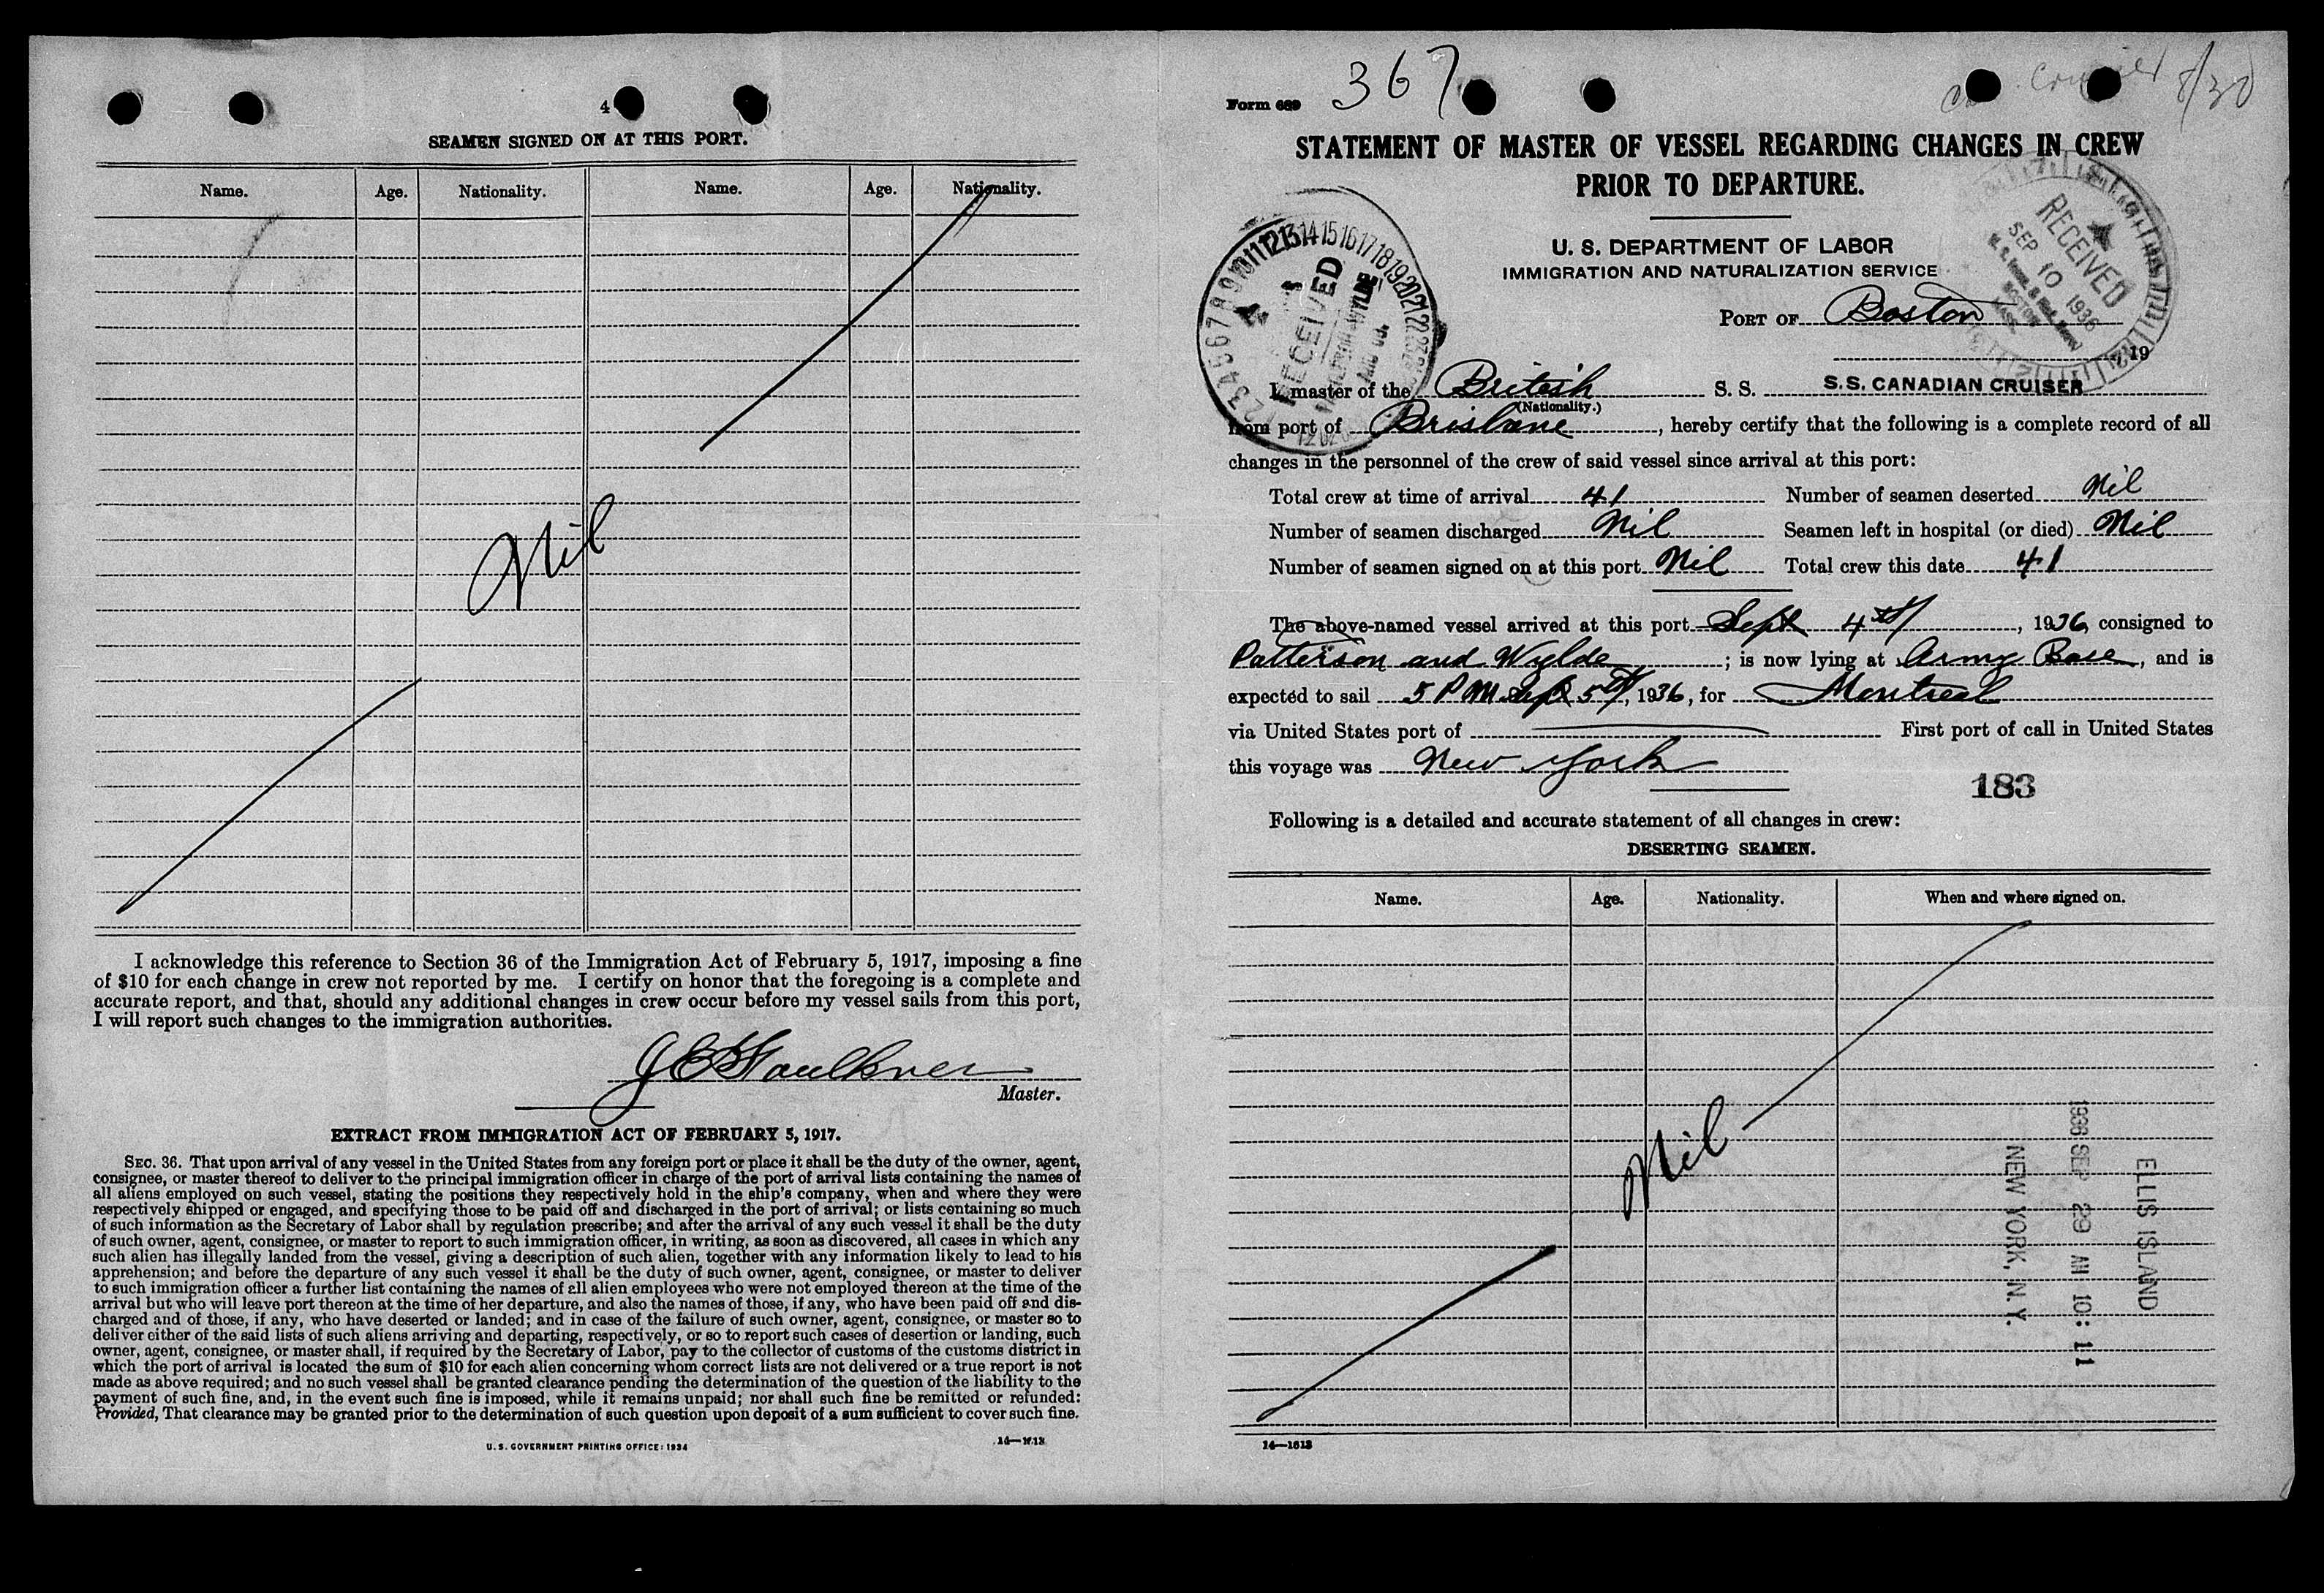 4
SEAMEN SIGNED ON AT THIS PORT.
Name. Age. Nationality. Name. Age. Nationality.
Nil
I acknowledge this reference to Section 36 of the Immigration Act of February 5, 1917, imposing a fine
of $10 for each change in crew not reported by me. I certify on honor that the foregoing is a complete and
accurate report, and that, should any additional changes in crew occur before my vessel sails from this port,
I will report such changes to the immigration authorities.
J E Faulkner
Master.
EXTRACT FROM IMMIGRATION ACT OF FEBRUARY 5, 1917.
SEC. 36. That upon arrival of any vessel in the United States from any foreign port or place it shall be the duty of the owner, agent,
consignee, or master thereof to deliver to the principal immigration officer in charge of the port of arrival lists containing the names of
all aliens employed on such vessel, stating the positions they respectively hold in the ship's company, when and where they were
respectively shipped or engaged, and specifying those to be paid off and discharged in the port of arrival; or lists containing so much
of such information as the Secretary of Labor shall by regulation prescribe; and after the arrival of any such vessel it shall be the duty
of such owner, agent, consignee, or master to report to such immigration officer, in writing, as soon as discovered, all cases in which any
such alien has illegally landed from the vessel, giving a description of such alien, together with any information likely to lead to his
apprehension; and before the departure of any such vessel it shall be the duty of such owner, agent, consignee, or master to deliver
to such immigration officer a further list containing the names of all alien employees who were not employed thereon at the time of the
arrival but who will leave port thereon at the time of her departure, and also the names of those, if any, who have been paid off and dis-
charged and of those, if any, who have deserted or landed; and in case of the failure of such owner, agent, consignee, or master so to
deliver either of the said lists of such aliens arriving and departing, respectively, or so to report such cases of desertion or landing, such
owner, agent, consignee, or master shall, if required by the Secretary of Labor, pay to the collector of customs of the customs district in
which the port of arrival is located the sum of $10 for each alien concerning whom correct lists are not delivered or a true report is not
made as above required; and no such vessel shall be granted clearance pending the determination of the question of the liability to the
payment of such fine, and, in the event such fine is imposed, while it remains unpaid; nor shall such fine be remitted or refunded:
Provided, That clearance may be granted prior to the determination of such question upon deposit of a sum sufficient to cover such fine.
U. S. GOVERNMENT PRINTING OFFICE: 1934
Form 689 367
8/30
STATEMENT OF MASTER OF VESSEL REGARDING CHANGES IN CREW
PRIOR TO DEPARTURE.
U. S. DEPARTMENT OF LABOR
IMMIGRATION AND NATURALIZATION SERVICE
RECEIVED
SEP 10 1936
BOSTON
MASS.
RECEIVED
PORT OF Boston
, 19
I, master of the British S. S. S.S. CANADIAN CRUISER
(Nationality.)
from port of Brisbane, hereby certify that the following is a complete record of all
changes in the personnel of the crew of said vessel since arrival at this port:
Total crew at time of arrival 41 Number of seamen deserted Nil
Number of seamen discharged Nil Seamen left in hospital (or died) Nil
Number of seamen signed on at this port Nil Total crew this date 41
The above-named vessel arrived at this port Sept 4th, 1936, consigned to
Patterson and Wylde; is now lying at Army Base, and is
expected to sail 5 PM Sept 5th, 1936, for Montreal
via United States port of First port of call in United States
this voyage was New York
183
Following is a detailed and accurate statement of all changes in crew:
DESERTING SEAMEN.
Name. Age. Nationality. When and where signed on.
Nil
ELLIS ISLAND
1936 SEP 29 AM 10:11
NEW YORK, N.Y.
14—1613